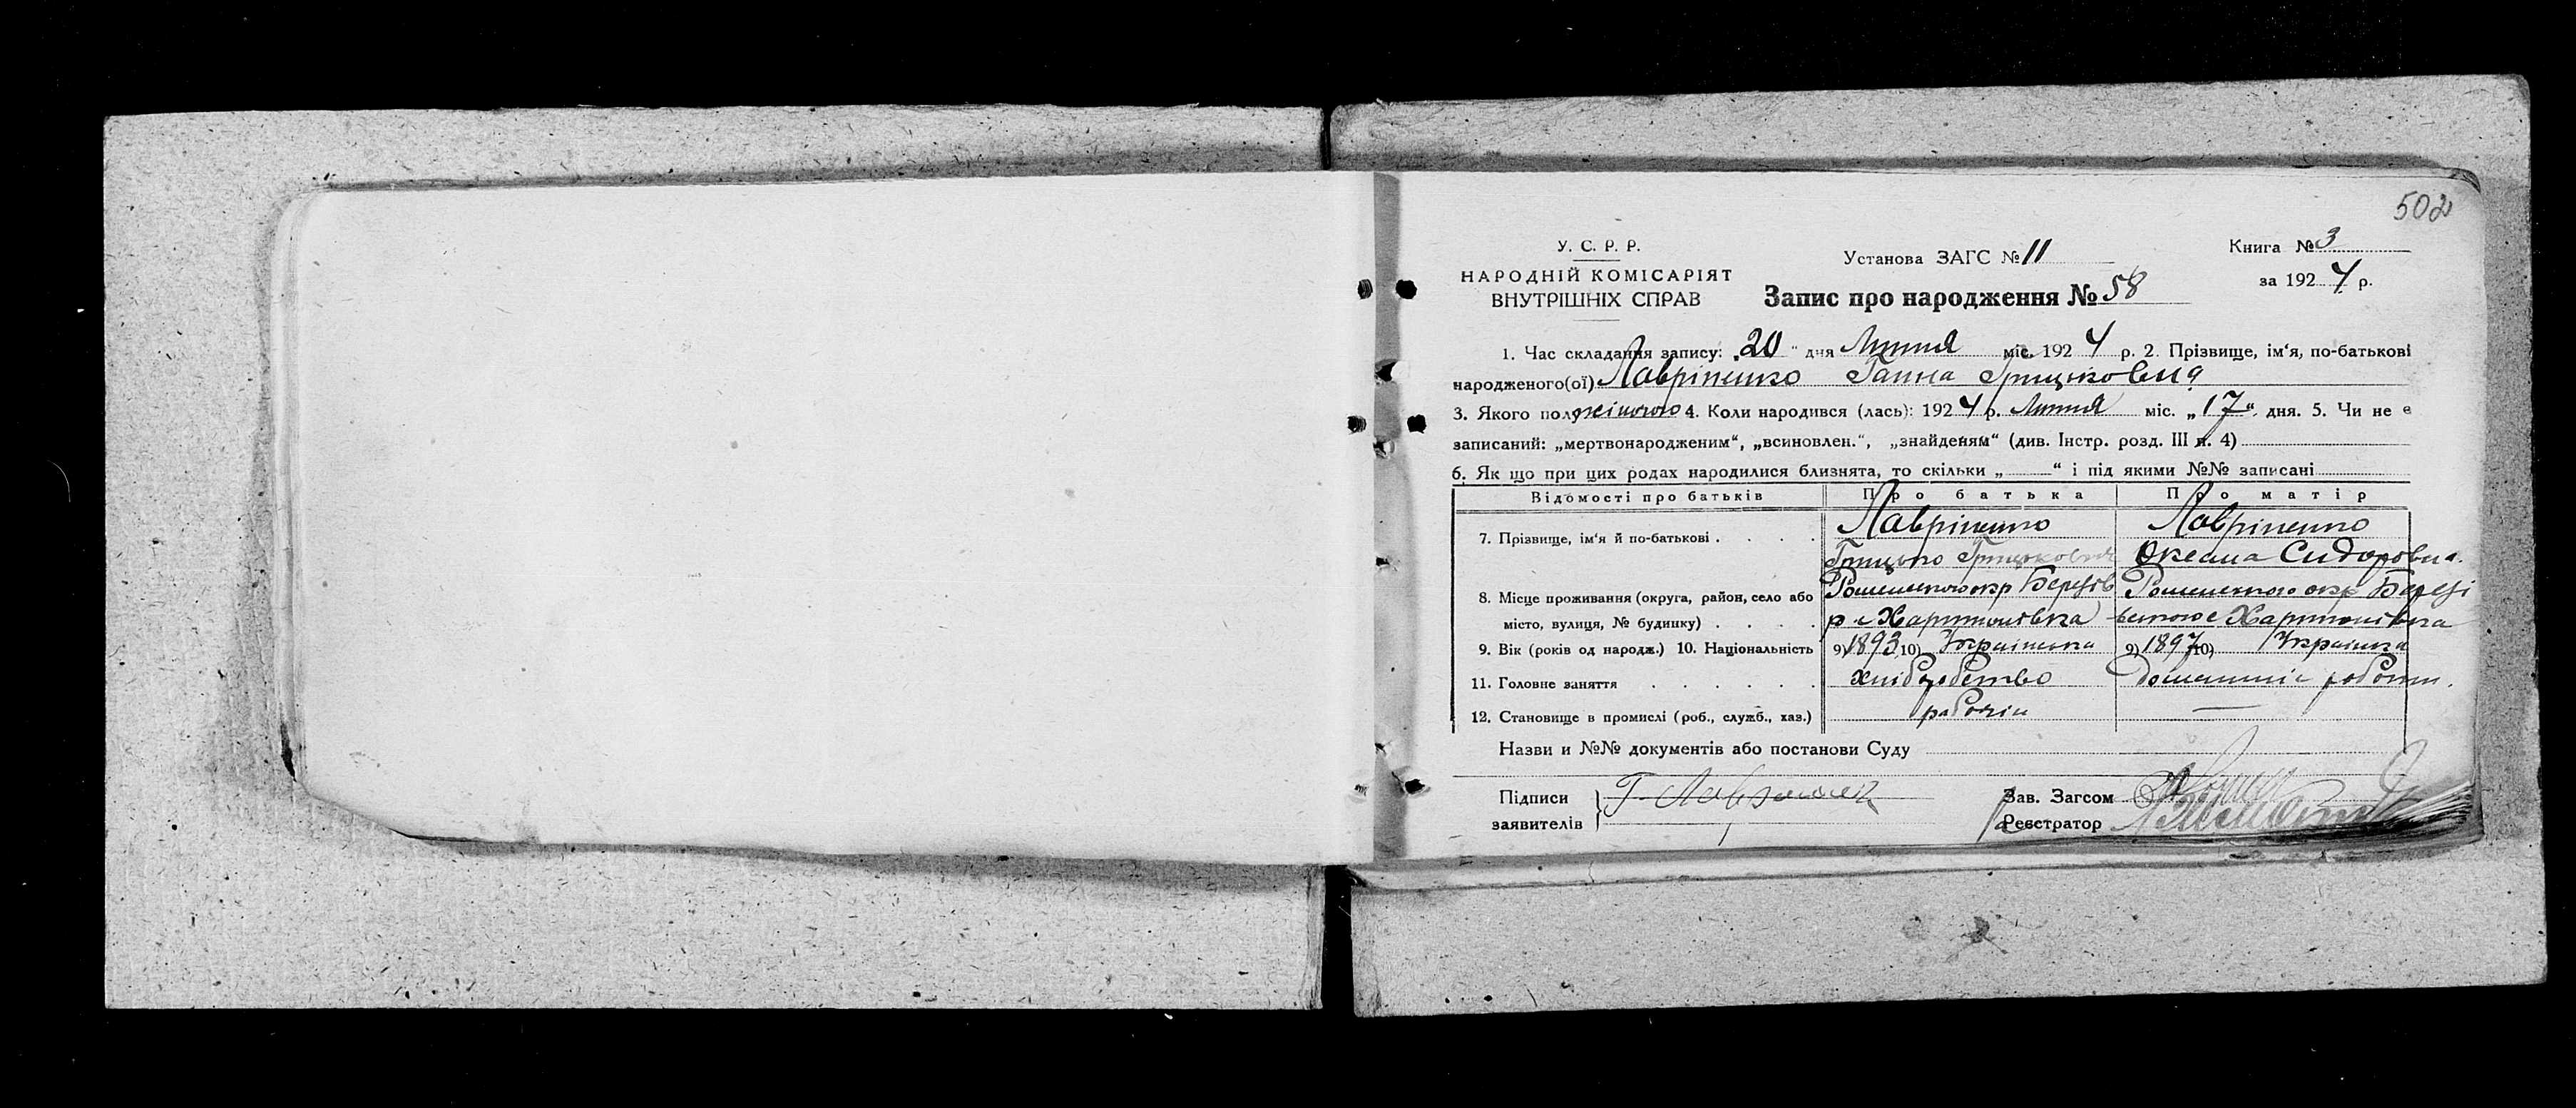 502
У. С. Р. Р.
НАРОДНІЙ КОМІСАРІЯТ
ВНУТРІШНІХ СПРАВ
Установа ЗАГС № 11
Запис про народження № 58
Книга № 3
за 1924 р.
1. Час складання запису: „20" дня Липня міс. 1924 р. 2. Прізвище, ім'я, по-батькові
народженого(ої) Лавріненко Ганна Грицьковна
3. Якого полу жіночого 4. Коли народився (лась): 1924 р. Липня міс. „17" дня. 5. Чи не є
записаний: „мертвонародженим", „всиновлен.", „знайденям" (див. Інстр. розд. III п. 4)
6. Як що при цих родах народилися близнята, то скільки „ " і під якими №№ записані
Відомості про батьків Про батька Про матір
7. Прізвище, ім'я й по-батькові . . . . Лавріненко Лавріненко
Грицько Грицькович Оксана Сидоровна.
8. Місце проживання (округа, район, село або Роменського окр Березів Роменського окр Березі
місто, вулиця, № будинку) . . . . р с Харитонівка вського с Харитонівка
9. Вік (років од народж.) 10. Національність 9) 1893 10) Українська 9) 1897 10) Українка
11. Головне заняття . . . . . . Хліборобство домашні роботи.
12. Становище в промислі (роб., служб., хаз.) рабочий —
Назви и №№ документів або постанови Суду
Підписи
заявителів
Г.
Зав. Загсом
Реєстратор